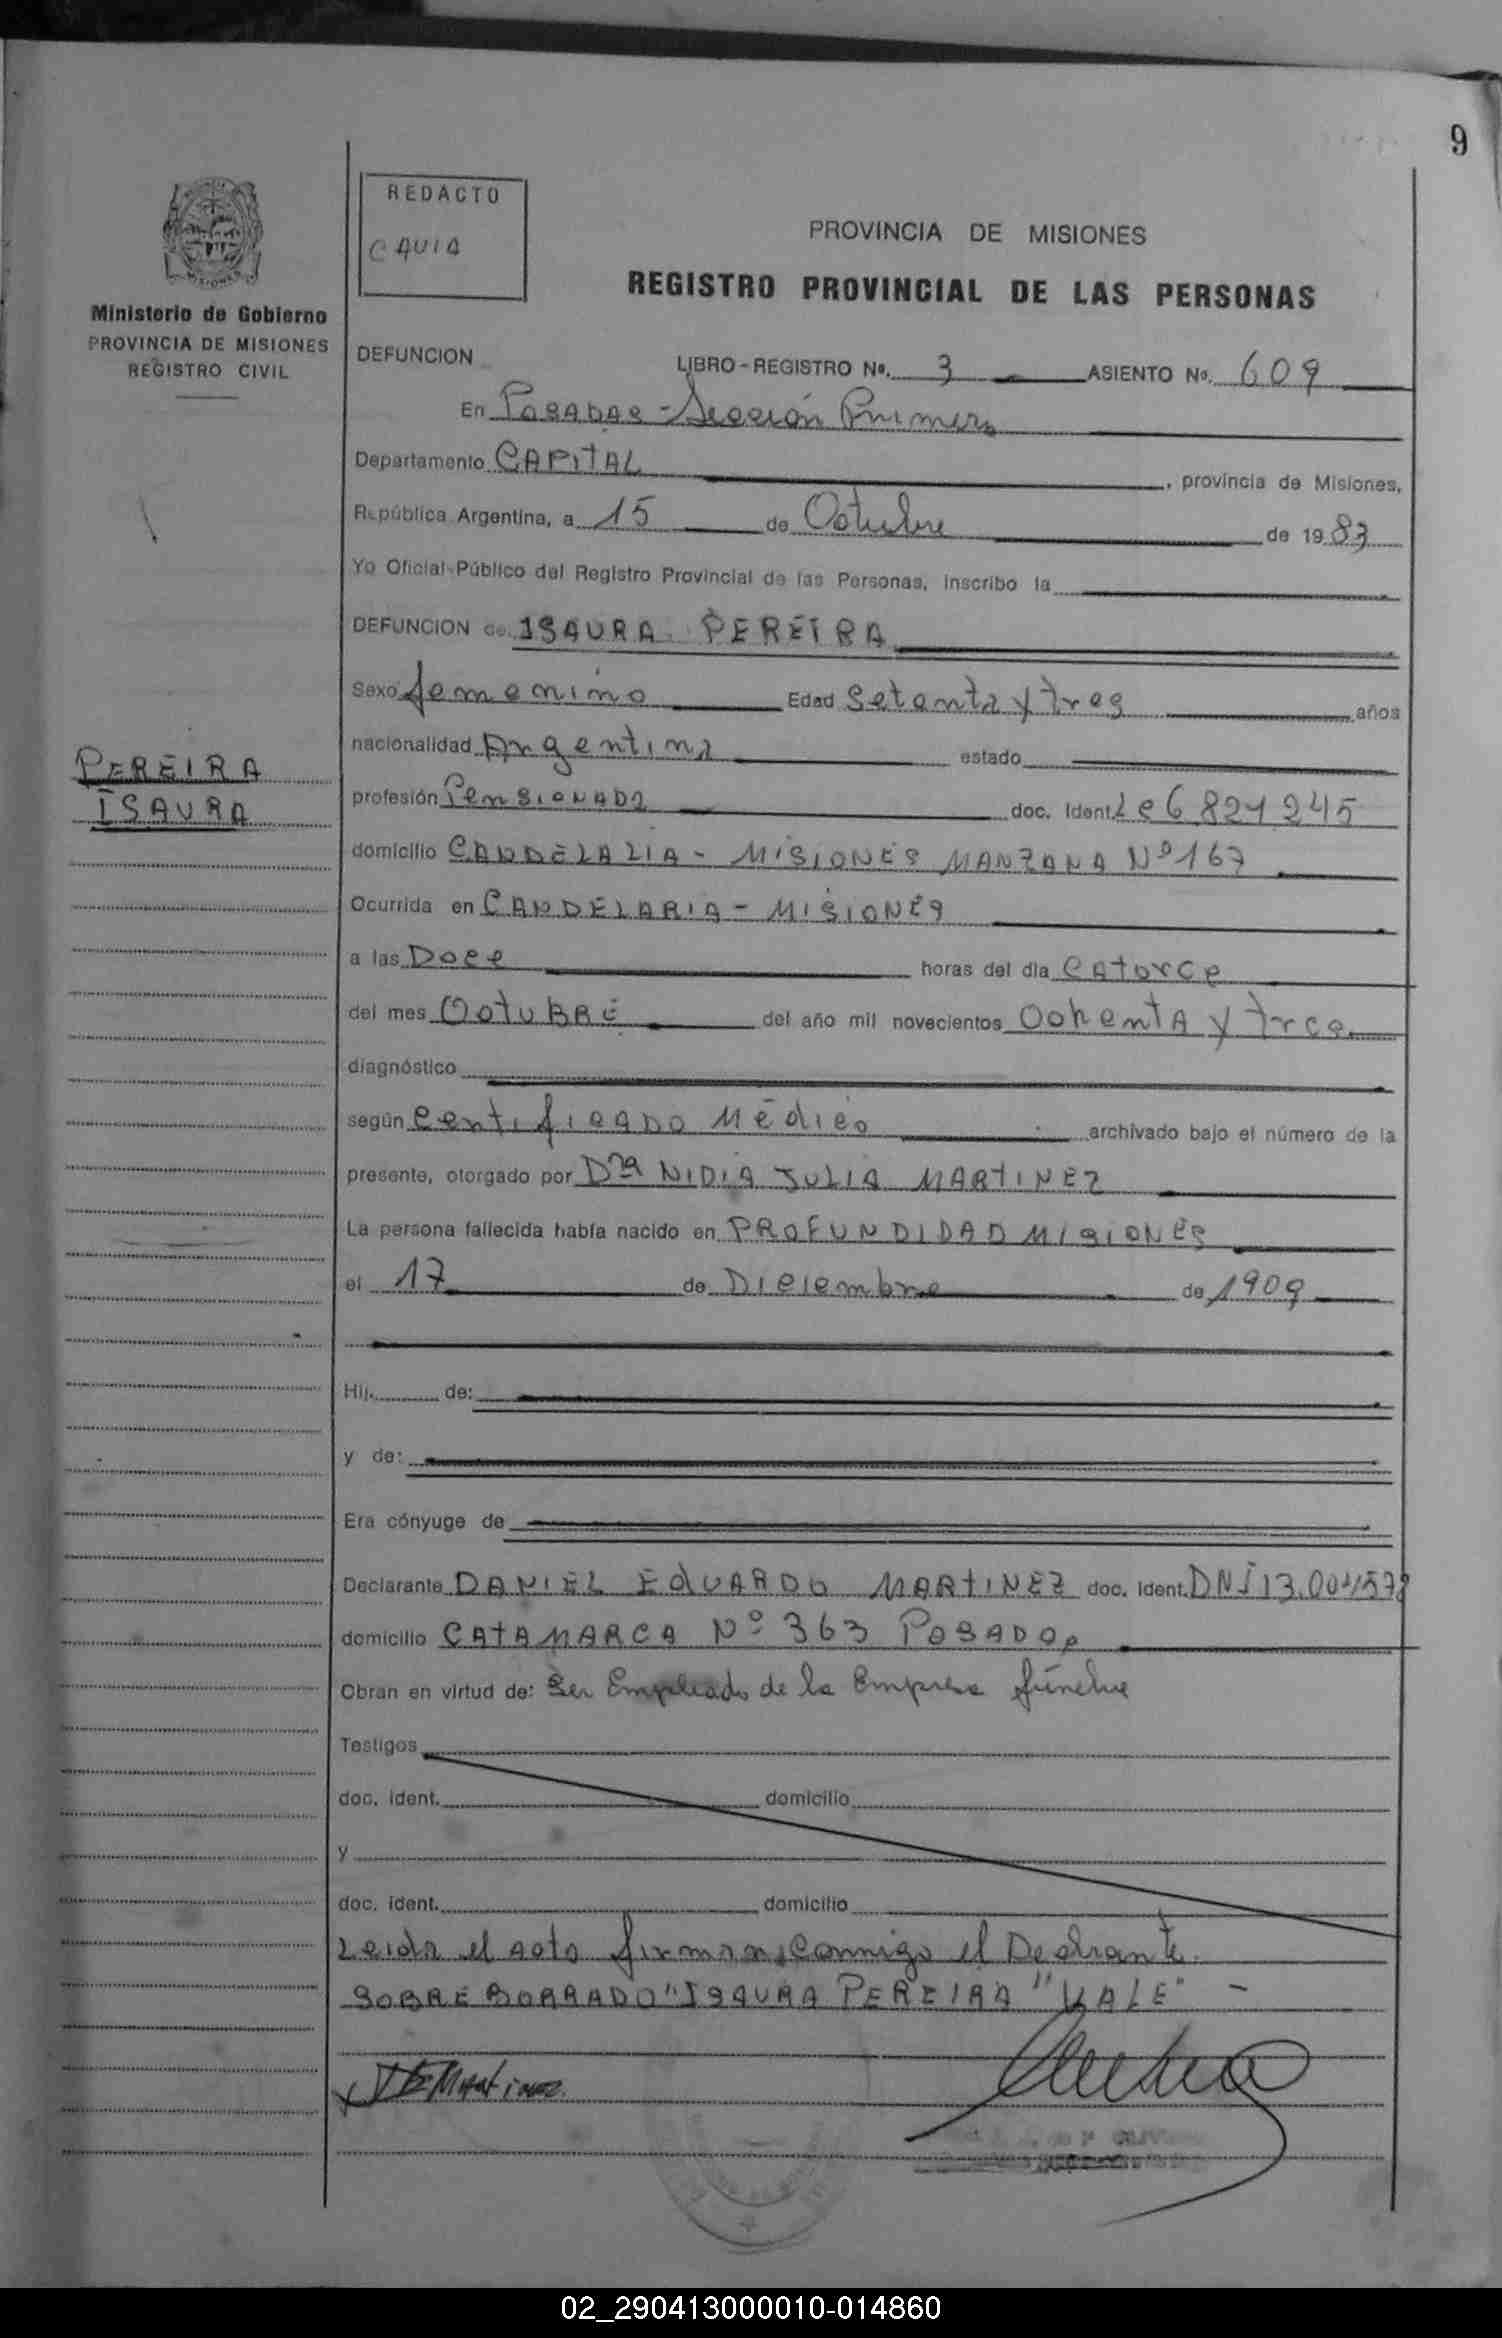 9
REDACTO
CAVIA
PROVINCIA DE MISIONES
REGISTRO PROVINCIAL DE LAS PERSONAS
MISIONES
Ministerio de Gobierno
PROVINCIA DE MISIONES
REGISTRO CIVIL
DEFUNCION LIBRO-REGISTRO Nº. 3 ASIENTO Nº. 609
En POSADAS - Sección Primera
Departamento CAPITAL, provincia de Misiones,
República Argentina, a 15 de Octubre de 1983
Yo Oficial Público del Registro Provincial de las Personas, inscribo la
DEFUNCION de ISAURA PEREIRA
Sexo femenino Edad Setenta y tres años
nacionalidad Argentina estado
PEREIRA
ISAURA
profesión PensIONADA doc. Ident. Lc 6 821 245
domicilio CANDELARIA - MISIONES MANZANA Nº 167
Ocurrida en CANDELARIA - MISIONES
a las Doce horas del día CAtorce
del mes OctuBRE del año mil novecientos OchentA y tres
diagnóstico
según CertificADO Médico archivado bajo el número de la
presente, otorgado por Dra NIDIA JULIA MARTINEZ
La persona fallecida había nacido en PROFUNDIDAD MISIONES
el 17 de Diciembre de 1909
Hij de:
y de:
Era cónyuge de
Declarante DANIEL EdUARDO MARTINEZ doc. Ident. DNI
domicilio CATAMARCA Nº 363 POSADAS
Obran en virtud de: Ser Empleado de la Empresa fúnebre
Testigos
doc. ident. domicilio
y
doc. ident. domicilio
Leida el acta firman conmigo el Declarante.
SOBRE BORRADO "ISAURA PEREIRA" "VALE" -
DEMartinez
02_290413000010-014860